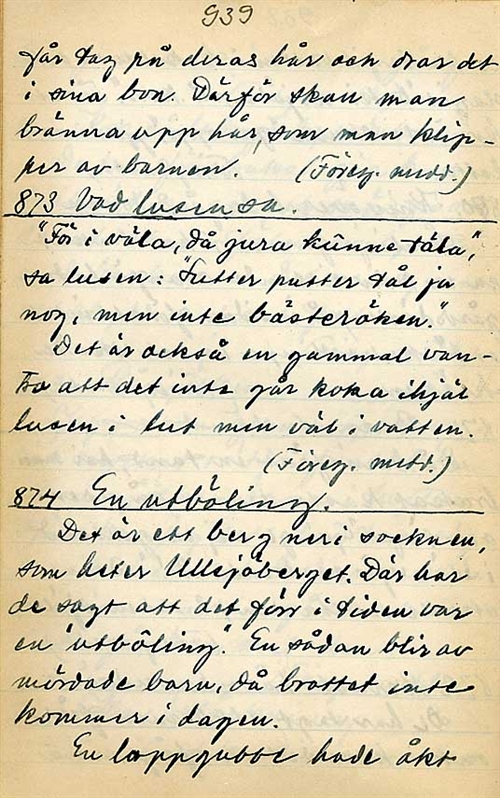 939
får tag på deras hår och drar det
i sina bon. Därför skall man
bränna upp hår, som man klip-
per av barnen. (Föreg. medd.)
873 Vad lusen sa.
"För i väla, då jura kunne tala",
sa lusen: "Futter putter tål ja
nog, men inte bästeröken."
Det är också en gammal van-
tro att det inte går koka ihjäl
lusen i lut men väl i vatten.
(Föreg. medd.)
874 En utböling.
Det är ett berg neri socknen,
som heter Ullsjöberget. Där har
de sagt att det förr i tiden var
en "utböling". En sådan blir av
mördade barn, då brottet inte
kommer i dagen.
En lappgubbe hade åkt